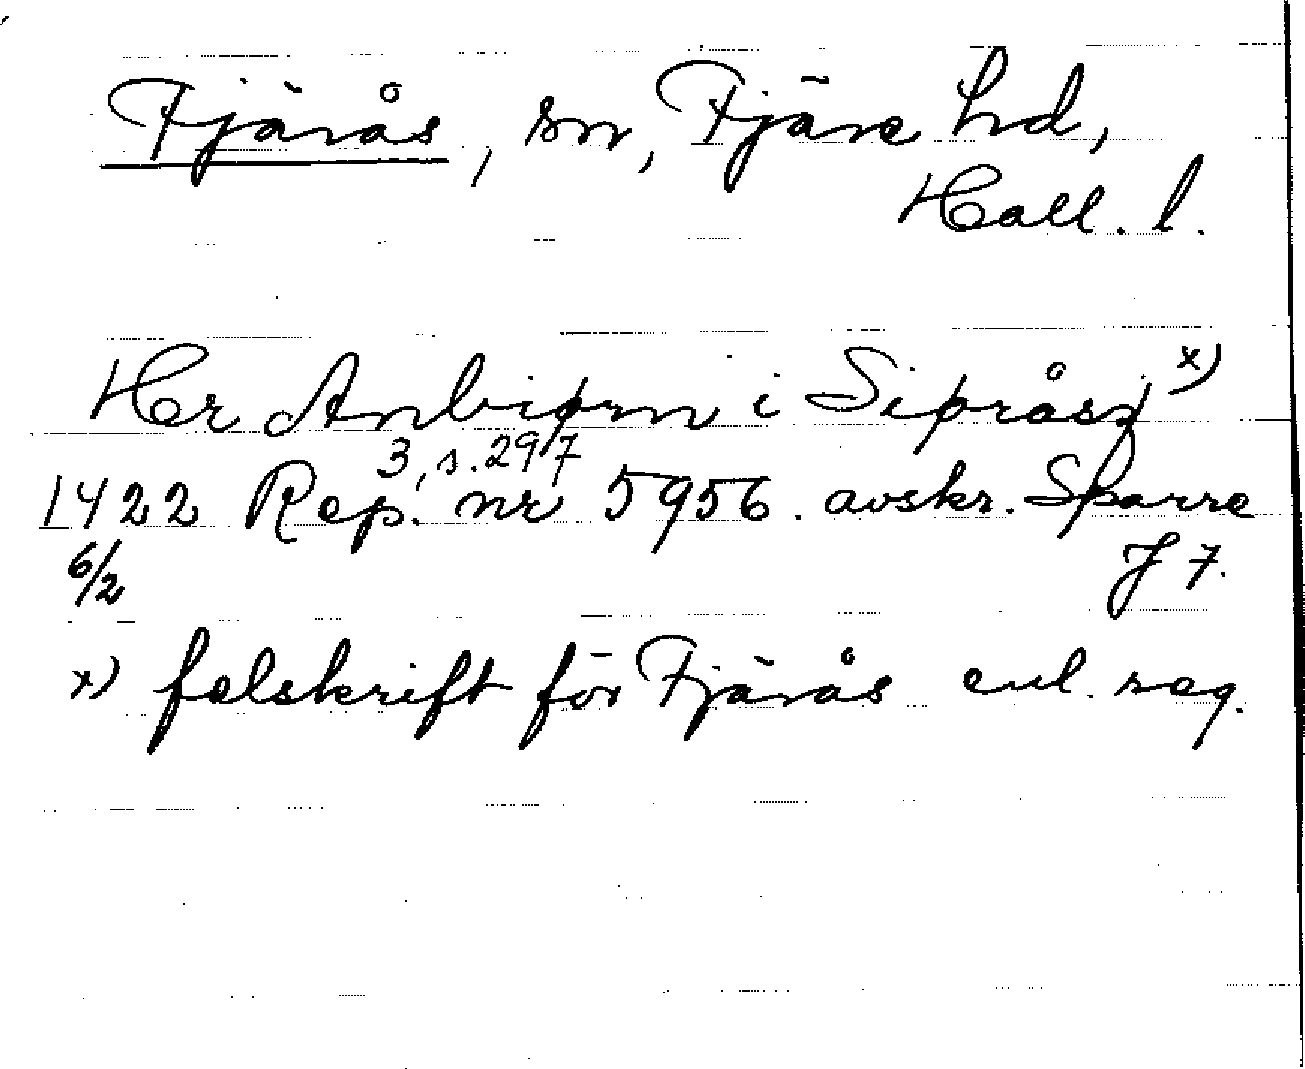 Fjärås, sn, Fjäre hd,
Hall. l.
Her Anbiørn i Sipråsz x)
3, s. 297
1422 Rep. nr 5956. avskr. Sparre
6/2 J 7.
x) felskrift för Fjärås enl. reg.